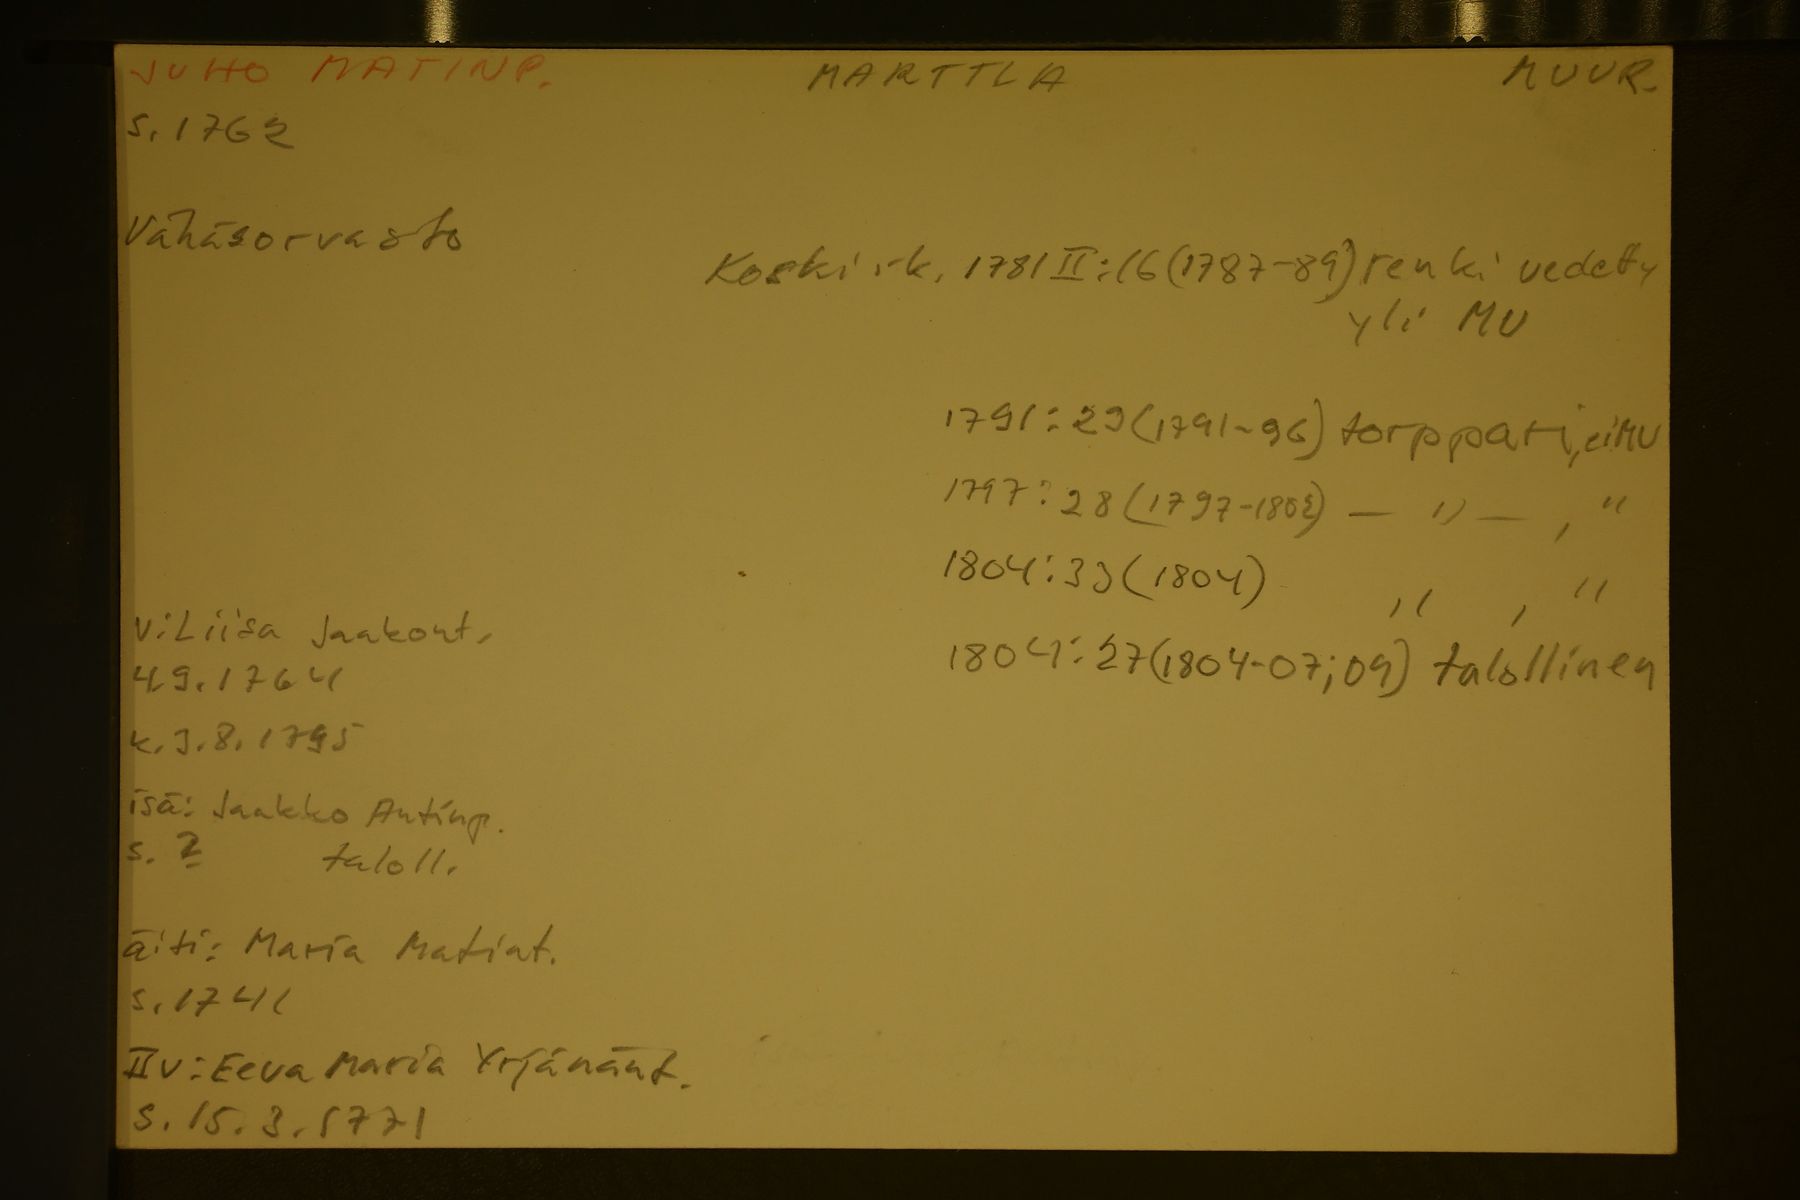 JUHO MATINP. MARTTLA MUUR.
s. 1762
Vähäsorvasto
Koski rk. 1781 II:16 (1787-89) renki vedetty
yli MU
1791:29 (1791-96) torppari, ei MU
1797:28 (1797-1802) — " — , "
1804:33 (1804) " , "
1804:27 (1804-07; 09) talollinen
v: Liisa Jaakont.
4.9.1764
k. 3.8.1795
isä: Jaakko Antinp.
s. ? taloll.
äiti: Maria Matint.
s. 1741
II v: Eeva Maria Yrjänänt.
s. 15.3.1771